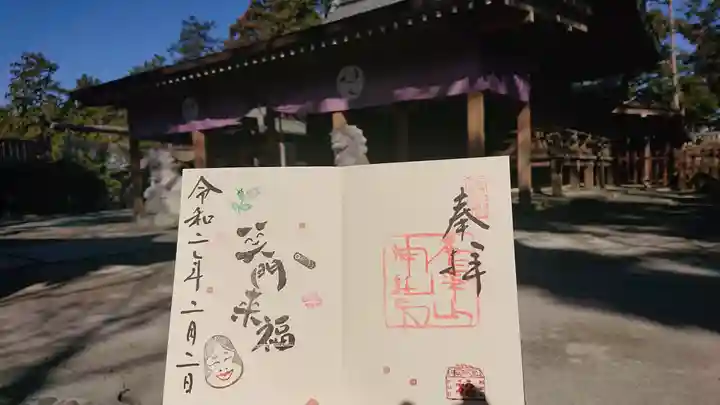 奉拝
笑門
来福
令和二年二月二日
福